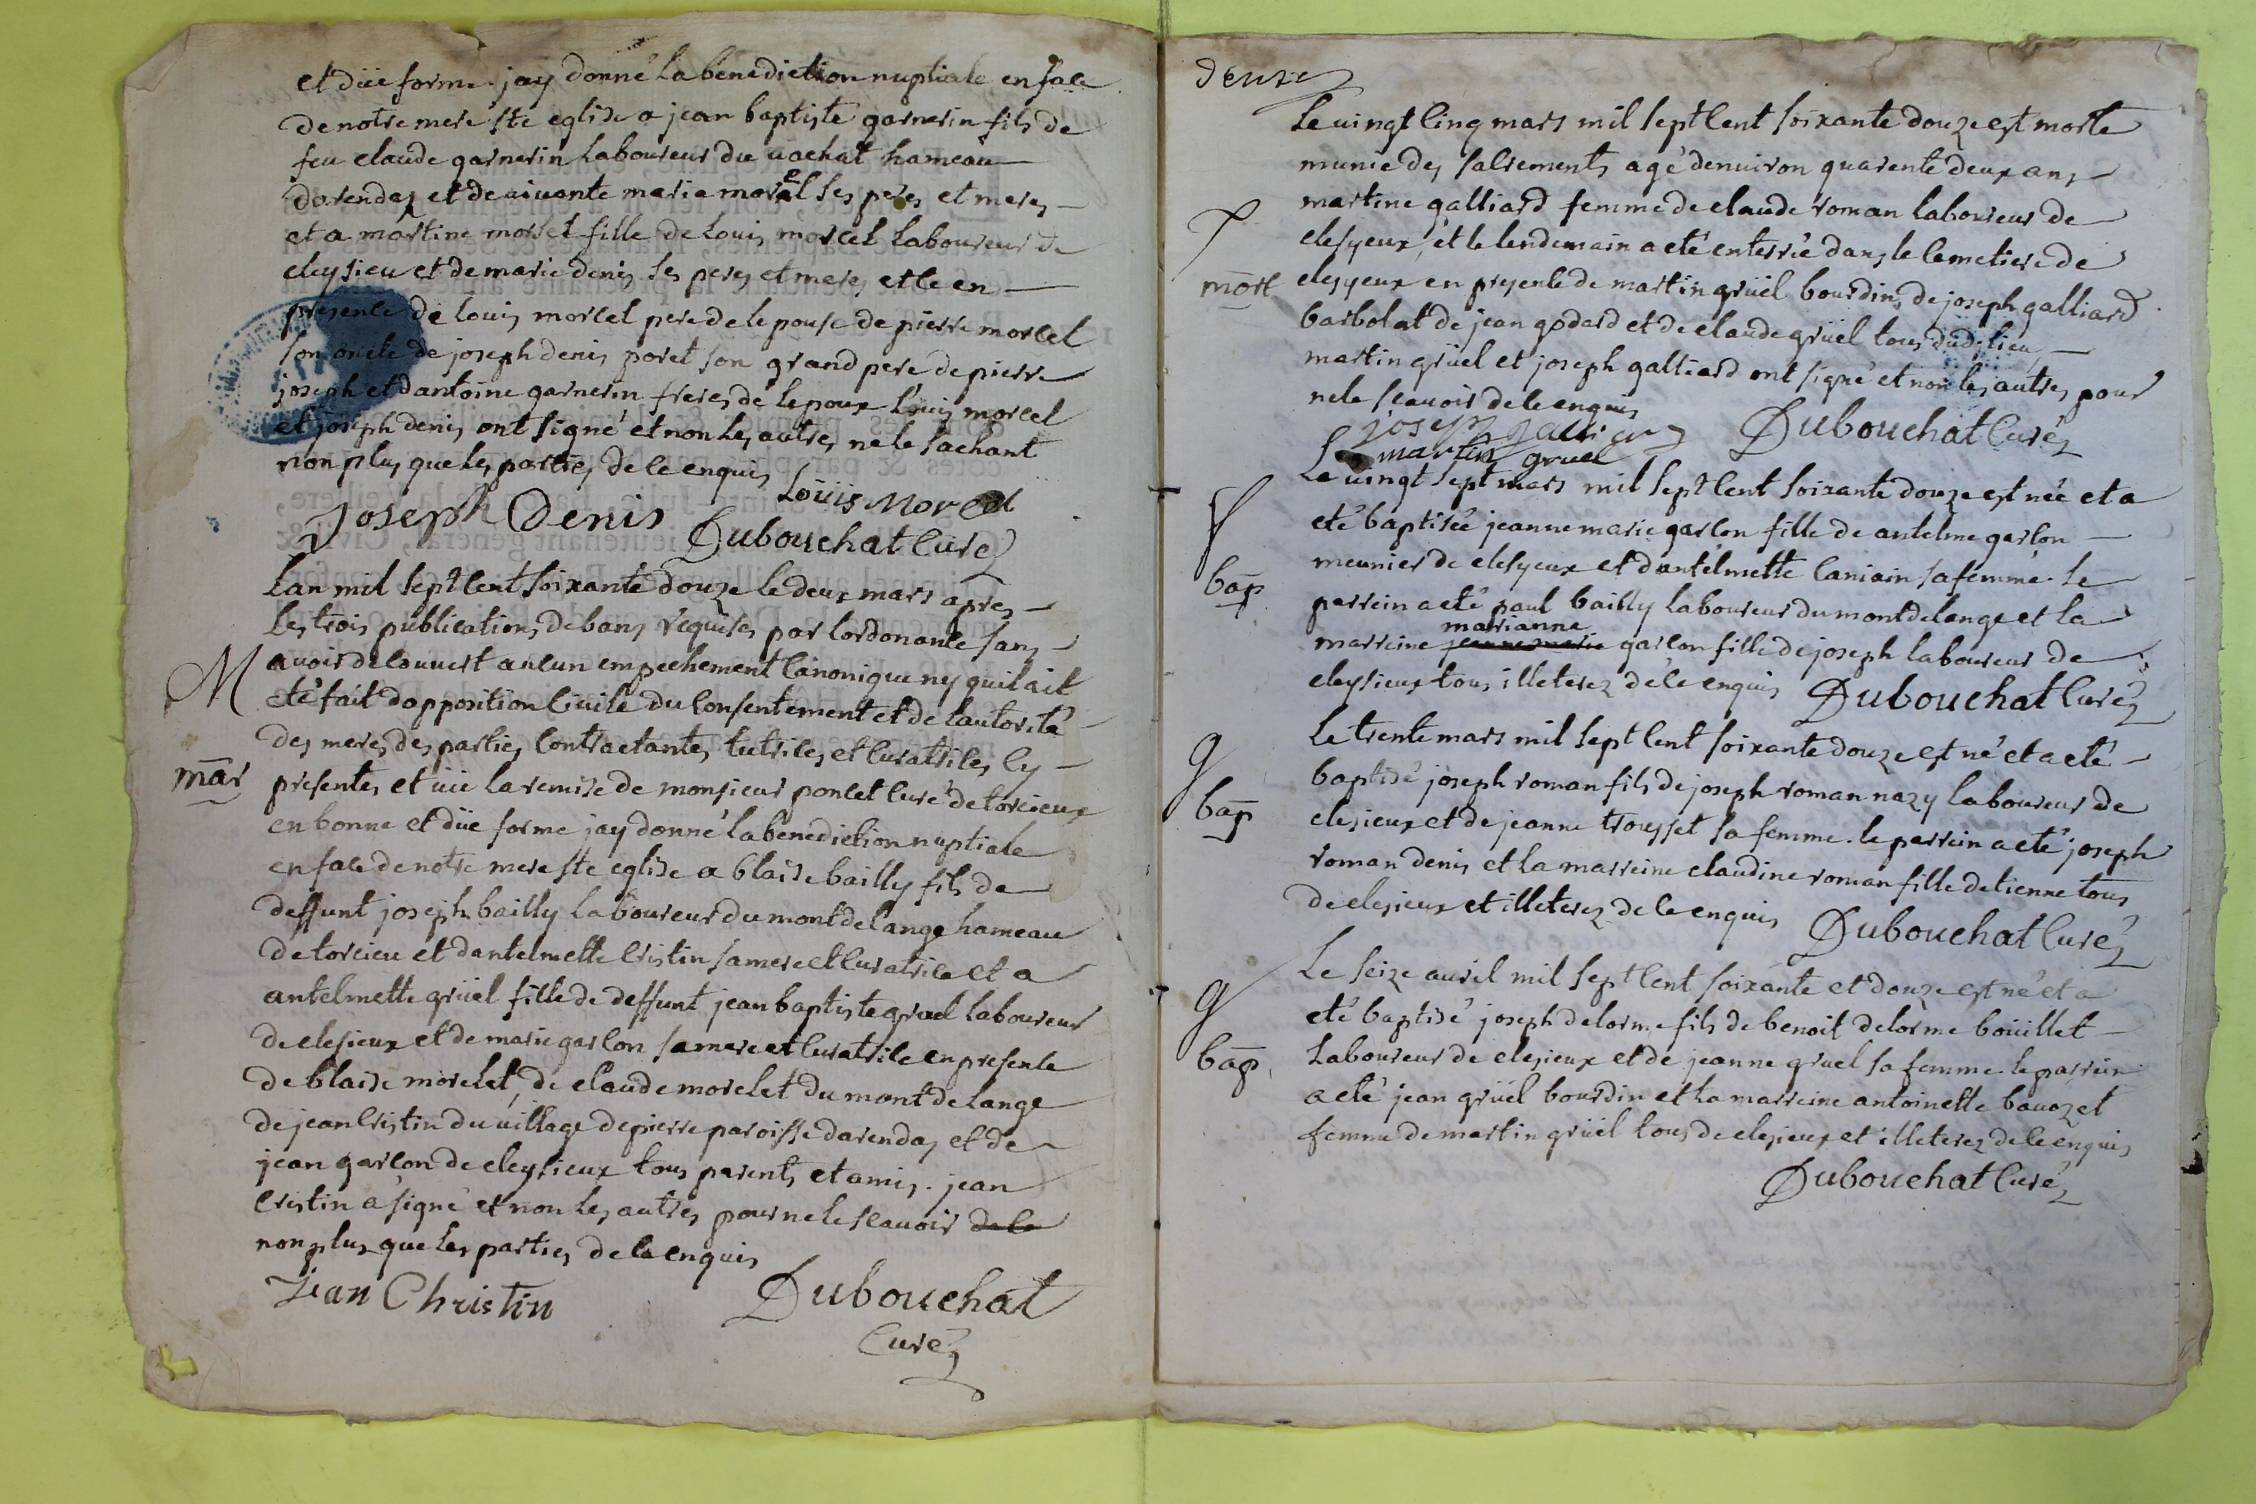 et düe forme jay donné la benediction nuptiale en face
de notre mere ste eglise a jean baptiste garnerin fils de
feu claude garnerin laboureur du vachat hameau
darendaz et de vivante marie morel ses peres et meres
et a martine morcel fille de louis morcel laboureur de
cleysieu et de marie denis ses peres et meres et ce en
presence de louis morcel pere de lepouse de pierre morcel
son oncle de joseph denis poret son grand pere de pierre
joseph et dantoine garnerin freres de lepoux louis morcel
et joseph denis ont signé et non les autres ne le sachant
non plus que les parties de ce enquis Loüis Morcel
Joseph Denis Dubouchat Curé
Lan mil sept cent soixante douze le deux mars apres
les trois publications de bans requises par lordonance sans
avoir decouvert aucun empechement canonique ny quil ait
M
eté fait dopposition civile du consentement et de lautorité
des meres des parties contractantes tutrices et curatrices cy
mar presentes et vüe la remise de monsieur poncet curé de torcieux
en bonne et düe forme jay donné la benediction nuptiale
en face de notre mere ste eglise a blaise bailly fils de
deffunt joseph bailly laboureur du mont de lange hameau
de torcieu et dantelmette cristin sa mere et curatrice et a
antelmette grüel fille de deffunt jean baptiste gruel laboureur
de clesieux et de marie garcon sa mere et curatrice en presence
de blaise morelet, de claude morelet du mont de lange
de jean cristin du village de pierre paroisse darendas et de
jean garcon de cleysieux tous parents et amis. jean
cristin a signé et non les autres pour ne le scavoir de ce
non plus que les parties de ce enquis
Jean Christin Dubouchat
Curé
deuxe
Le vingt cinq mars mil sept cent soixante douze est morte
munie des sacrements agé denviron quarente deux ans
martine galliard femme de claude roman laboureur de
clesyeux, et le lendemain a eté enterrée dans le cemetiere de
mort clesyeux en presence de martin grüel bourdin, de joseph galliard
barbolat de jean godard et de claude grüel tous dudt lieu
martin grüel et joseph galliard ont signé et non les autres pour
ne le scavoir de ce enquis
joseph galliard Dubouchat Curé
martin gruel
Le vingt sept mars mil sept cent soixante douze est née et a
eté baptisée jeanne marie garcon fille de antelme garcon
bap meunier de clesyeux et dantelmette caniain sa femme. le
parrein a eté paul bailly laboureur du mont de lange et la
marianne
marreine jeanne marie garcon fille de joseph laboureur de
cleysieux tous illeterez de ce enquis Dubouchat Curé
Le trente mars mil sept cent soixante douze est né et a eté
g
baptisé joseph roman fils de joseph roman nazy laboureur de
bap clesieux et de jeanne trousset sa femme. le parrein a eté joseph
roman denis et la marreine claudine roman fille detienne tous
de clesieux et illeterez de ce enquis Dubouchat Curé
Le seize avril mil sept cent soixante et douze est né et a
g
eté baptisé joseph delorme fils de benoit delorme boüillet
bap laboureur de clesieux et de jeanne gruel sa femme. le parrein
a eté jean grüel bourdin et la marreine antoinette bavozet
femme de martin grüel tous de clesieux et illeterez de ce enquis
Dubouchat Curé